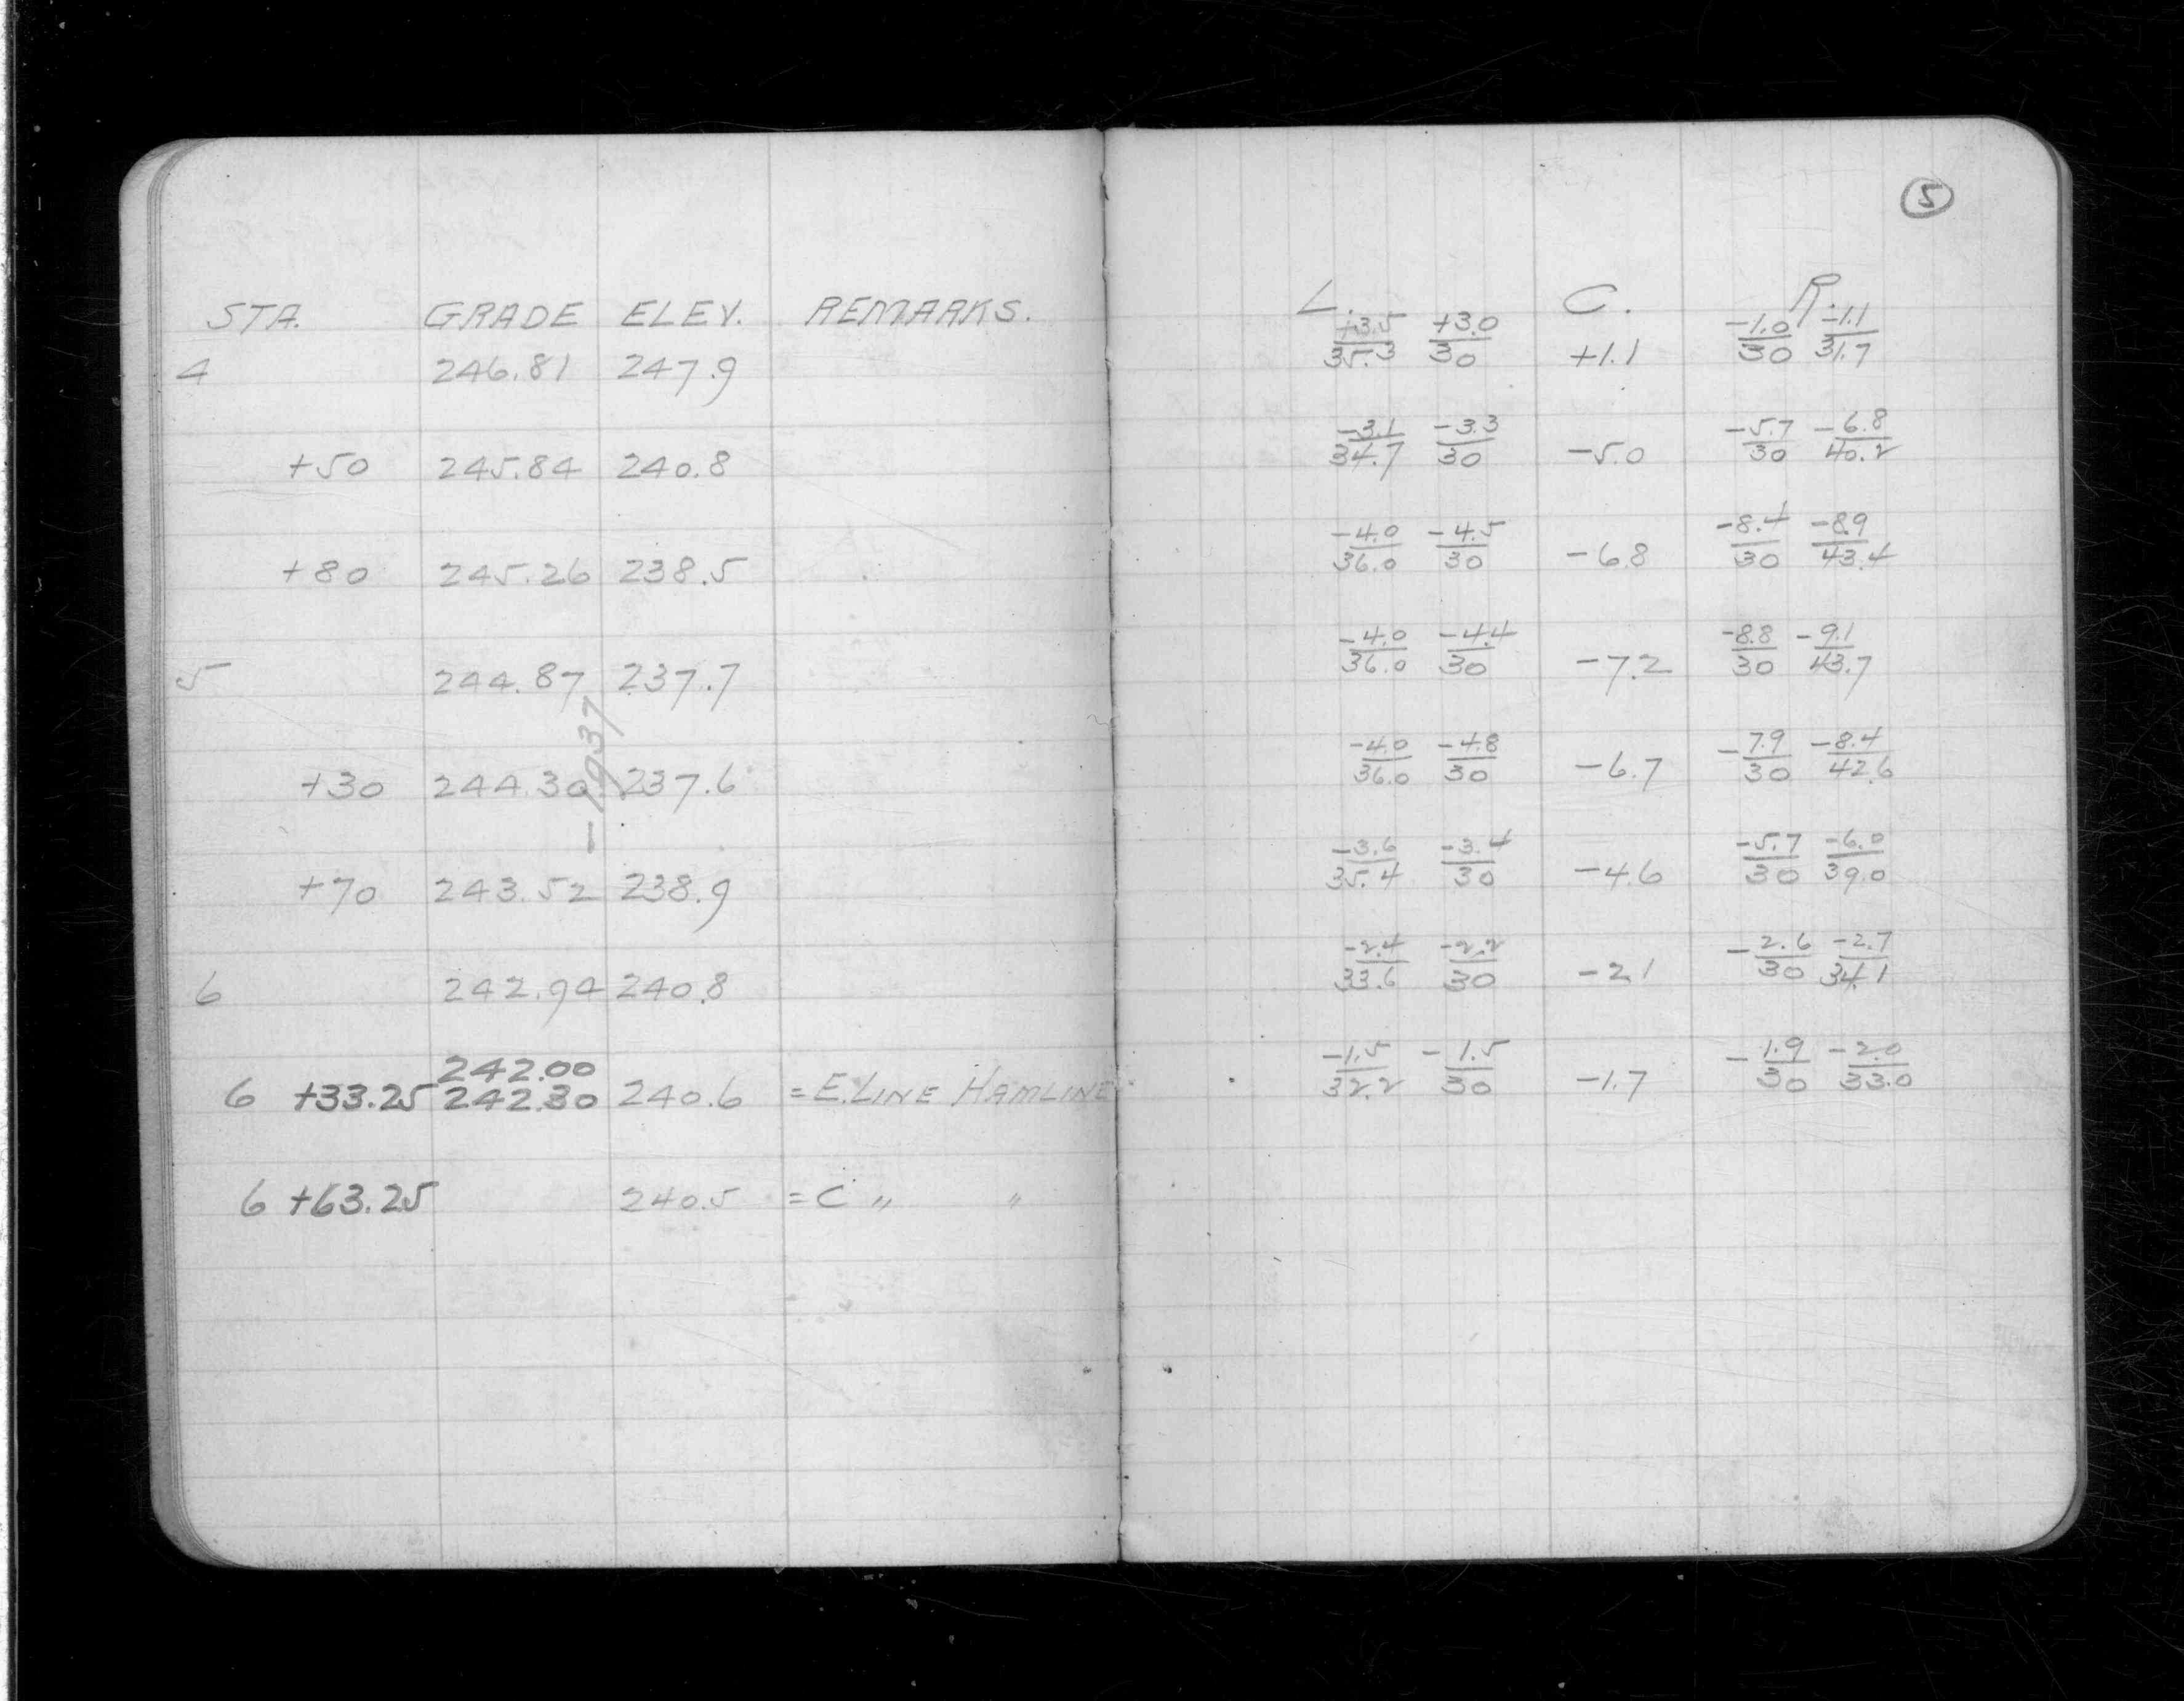 5
STA. GRADE ELEV. REMARKS. L. C. R.
+3.5 +3.0 -1.0 -1.1
4 246.81 247.9 35.3 30 +1.1 30 31.7
-3.1 -3.3 -5.7 -6.8
+50 245.84 240.8 34.7 30 -5.0 30 40.2
-4.0 -4.5 -8.4 -8.9
+80 245.26 238.5 36.0 30 -6.8 30 43.4
-4.0 -4.4 -8.8 -9.1
5 244.87 237.7 36.0 30 -7.2 30 43.7
-1.937
-4.0 -4.8 -7.9 -8.4
+30 244.30 237.6 36.0 30 -6.7 30 42.6
-3.6 -3.4 -5.7 -6.0
+70 243.52 238.9 35.4 30 -4.6 30 39.0
-2.4 -2.2 -2.6 -2.7
6 242.94 240.8 33.6 30 -2.1 30 34.1
242.00 -1.5 -1.5 -1.9 -2.0
6 +33.25 242.30 240.6 = E. LINE HAMLINE 32.2 30 -1.7 30 33.0
6 +63.25 240.5 = C " "